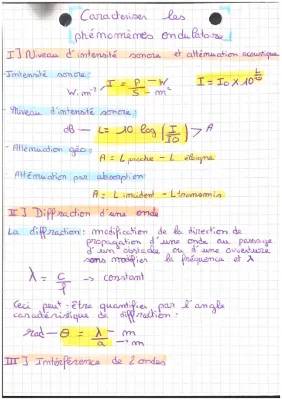 Caractériser les
phénomènes ondulatoires
I] Niveau d'intensité sonore et atténuation acoustique
- Intensité sonore : I = P/S — W — m² W.m⁻² I = I₀ × 10^(L/10)
- Niveau d'intensité sonore :
dB — L = 10 log (I/I₀) > A
- Atténuation géo :
A = L proche - L éloigné
Atténuation par absorption
A = L incident - L transmis
II] Diffraction d'une onde
La diffraction : modification de la direction de
propagation d'une onde au passage
d'un obstacle ou d'une ouverture
sans modifier la fréquence et λ
λ = c/f -> constant
Ceci peut-être quantifier par l'angle
caractéristique de diffraction :
rad — θ = λ/a — m → m
III] Interférence de 2 ondes